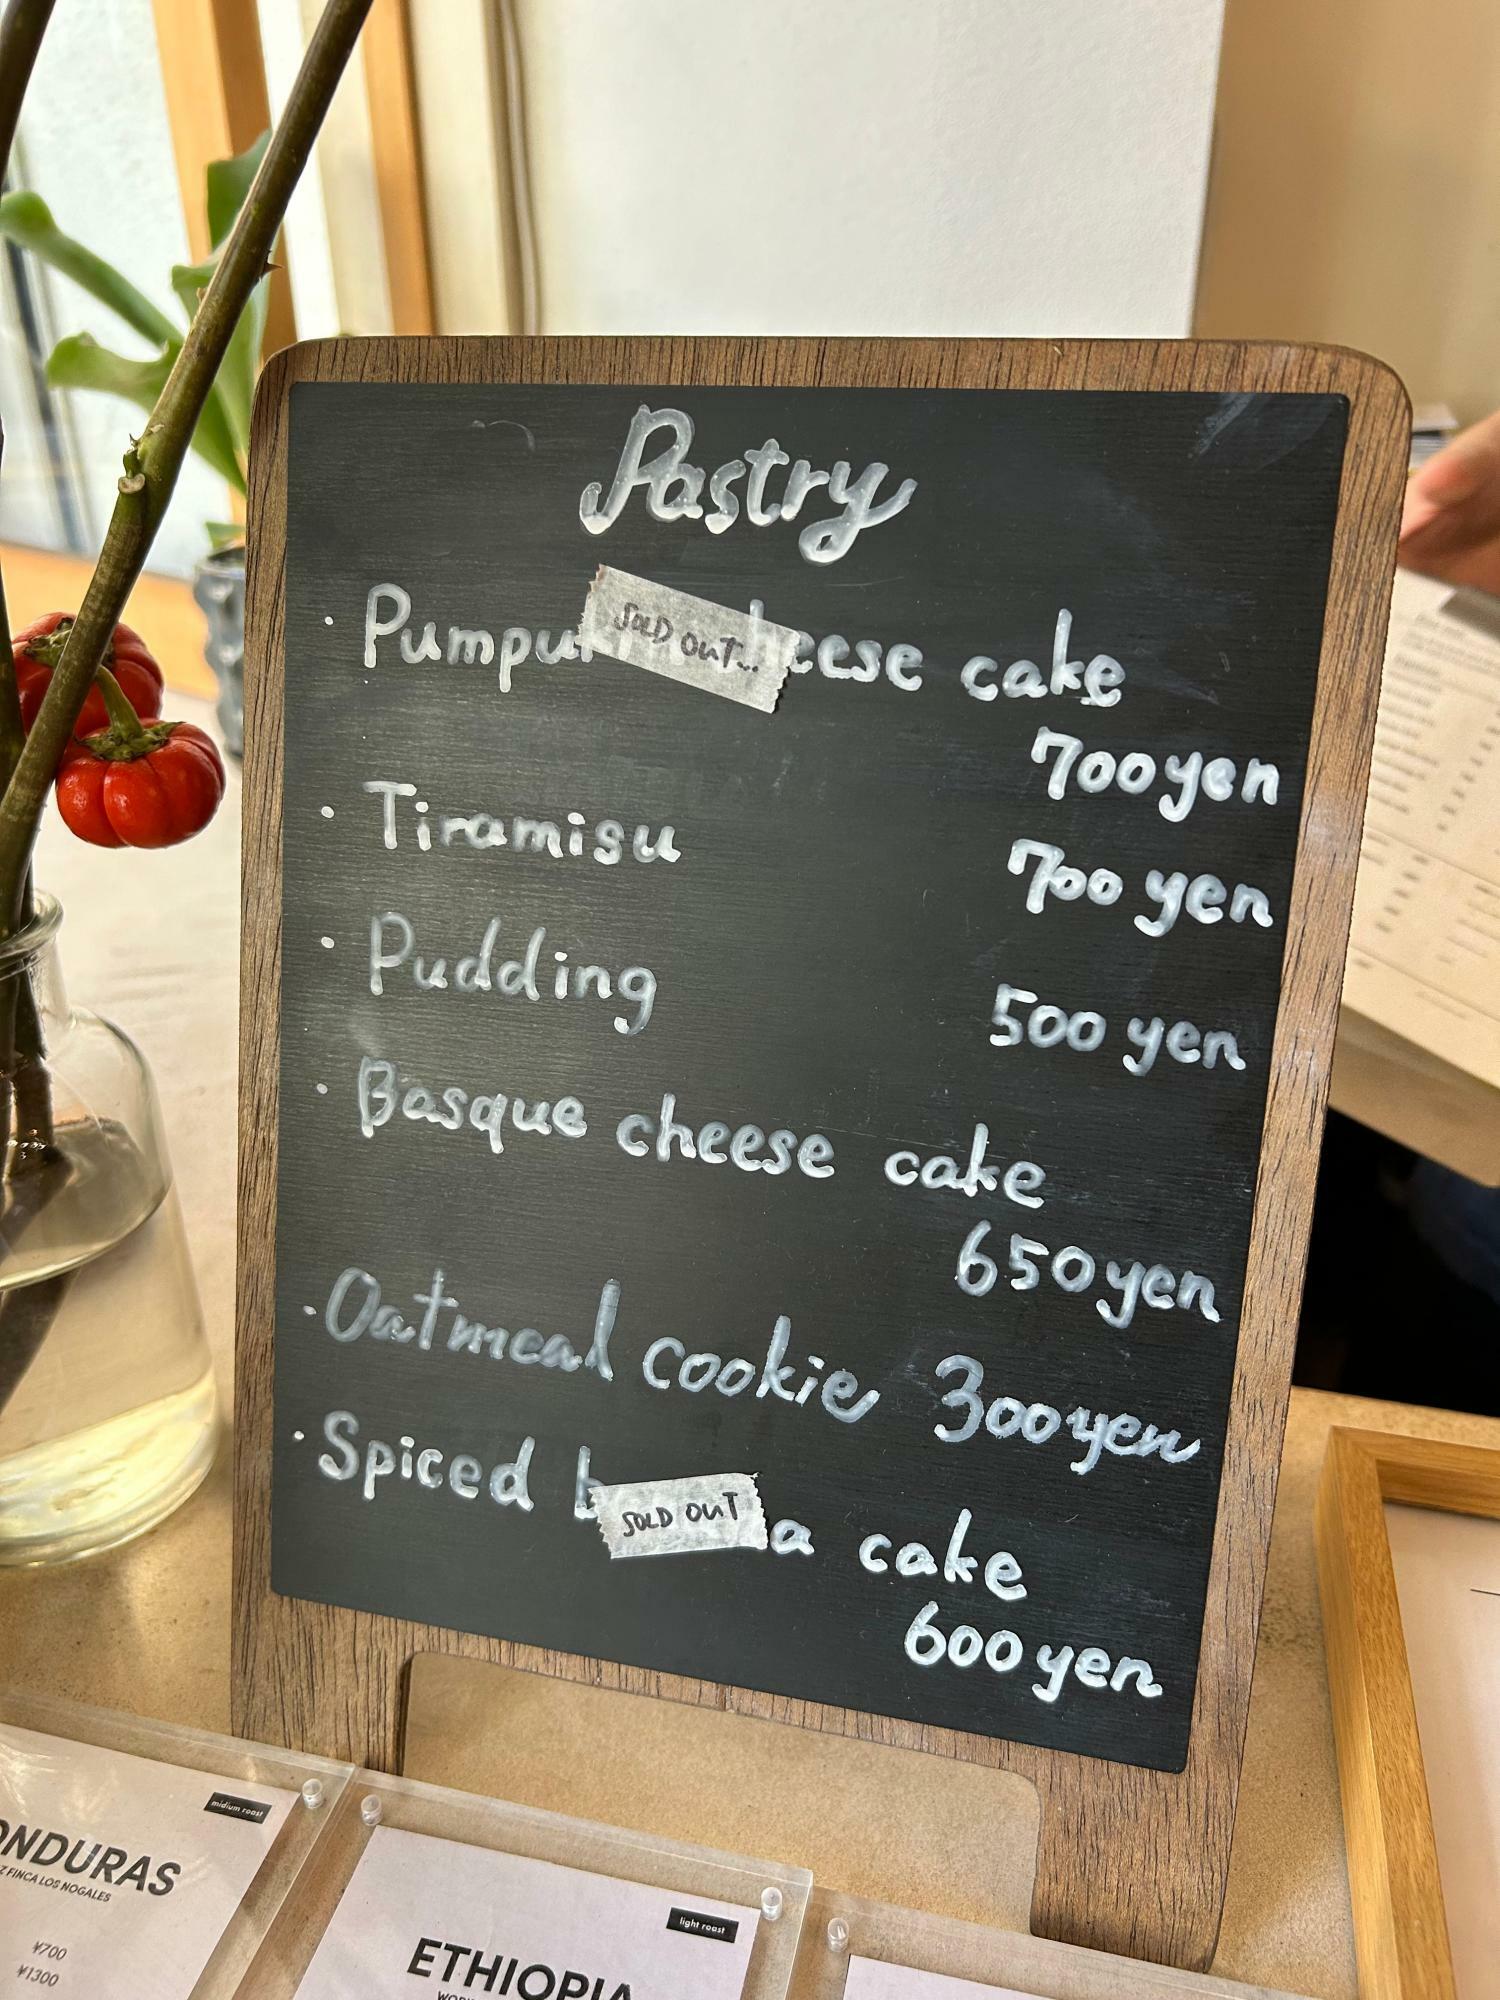 Pastry
· Pumpu cheese cake
SOLD OUT...
700yen
· Tiramisu 700 yen
· Pudding 500 yen
· Basque cheese cake
650yen
· Oatmeal cookie 300yen
· Spiced b a cake
SOLD OUT
600yen
midium roast
ONDURAS
Z FINCA LOS NOGALES
¥700
¥1300
light roast
ETHIOPIA